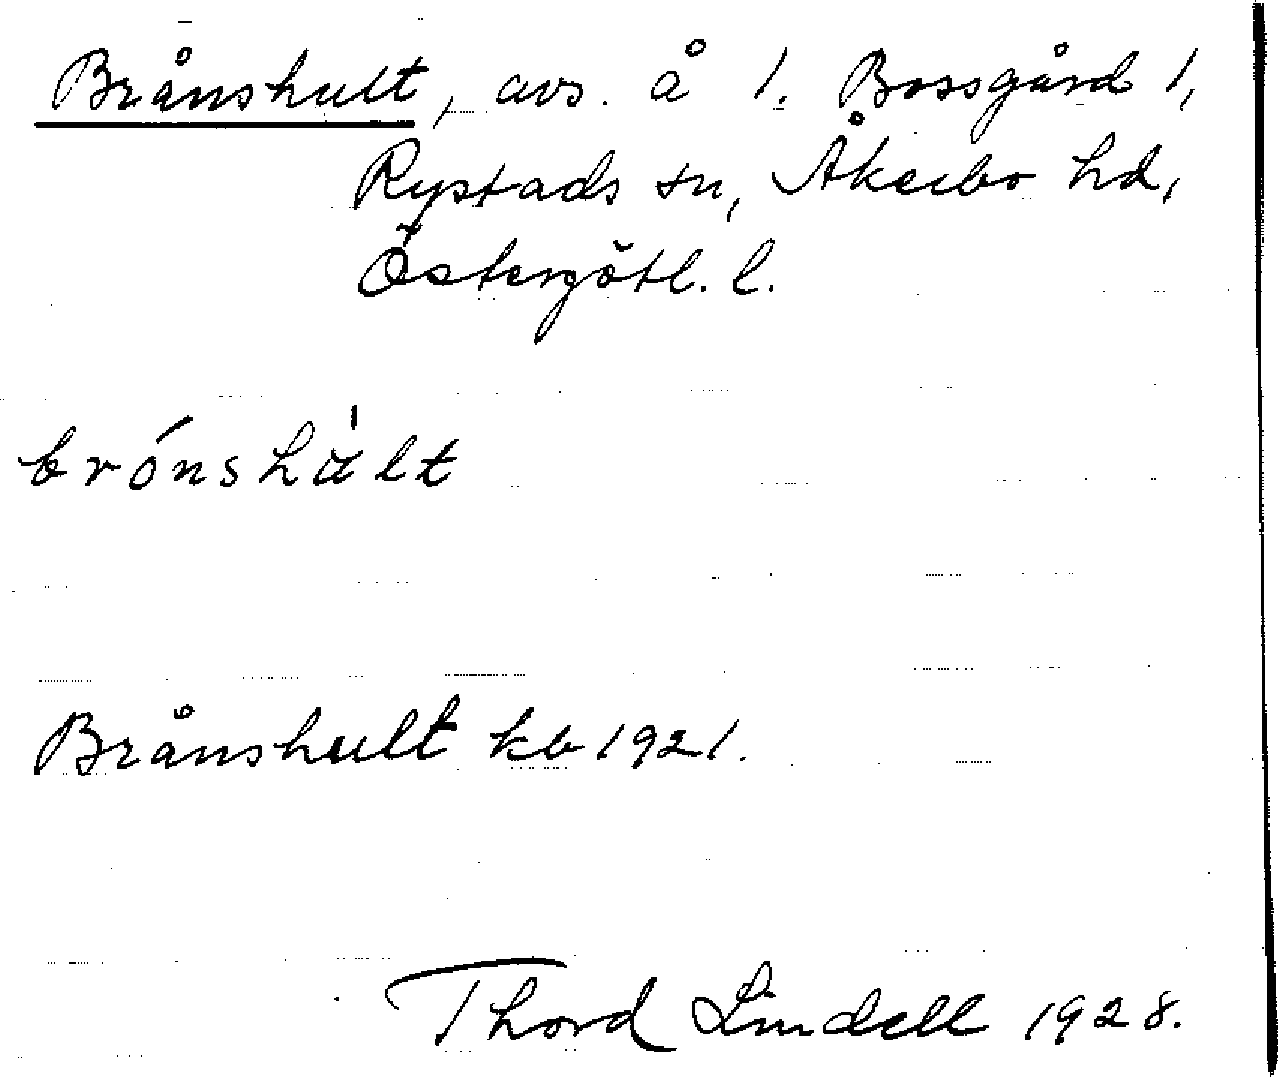 Brånshult, avs. å 1. Bossgård 1,
Rystads sn, Åkerbo hd,
Östergötl. l.
brónshált
Brånshult kb 1921.
Thord Lindell 1928.